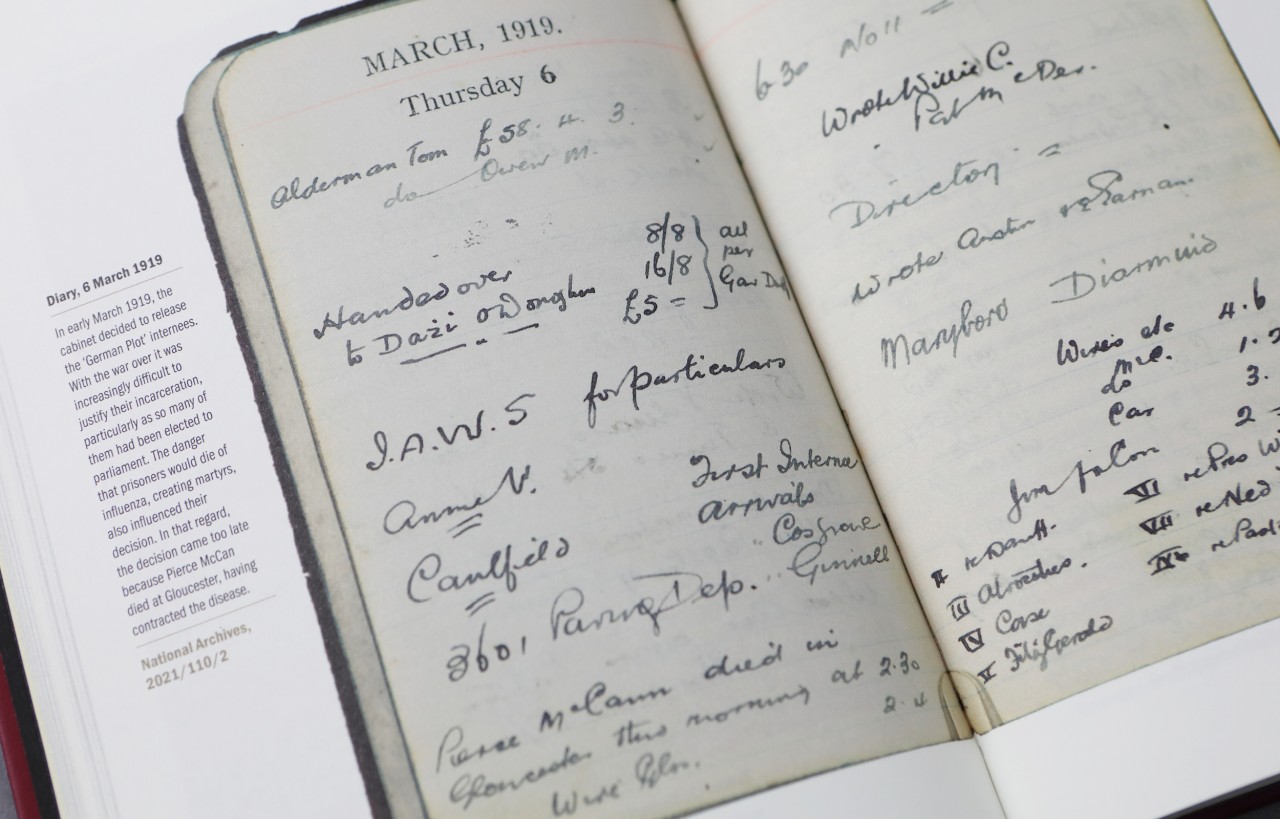 Diary, 6 March 1919
In early March 1919, the
cabinet decided to release
the 'German Plot' internees.
With the war over it was
increasingly difficult to
justify their incarceration,
particularly as so many of
them had been elected to
parliament. The danger
that prisoners would die of
influenza, creating martyrs,
also influenced their
decision. In that regard,
the decision came too late
because Pierce McCan
died at Gloucester, having
contracted the disease.
National Archives,
2021/110/2
MARCH, 1919.
Thursday 6
Alderman Tom £58. 4. 3.
do Owen M.
8/8
Handed over 16/8 all per
to Daži o'Donoghue £5 =
I.A.W.S for particulars
Anne V.
First Interne
arrivals
Caulfield
" Cosgrove
3601 Paring Dep. " Ginnell
Pierse McCann died in
Gloucester this morning at 2.30
2.4
Wire
630 No 11 =
Wrote Willie C.
Director =
Wrote Austin re
Maryboro Diarmuid
Wires etc 4.6
do
Car 2
Jim
II re
III Atrocities.
IV Case
V FitzGerald
VI re Pres
VII re Ned